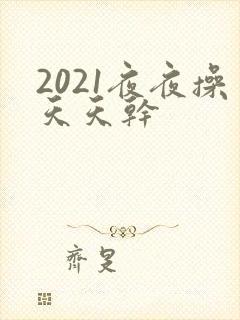 2021夜夜操
天天幹
齊是